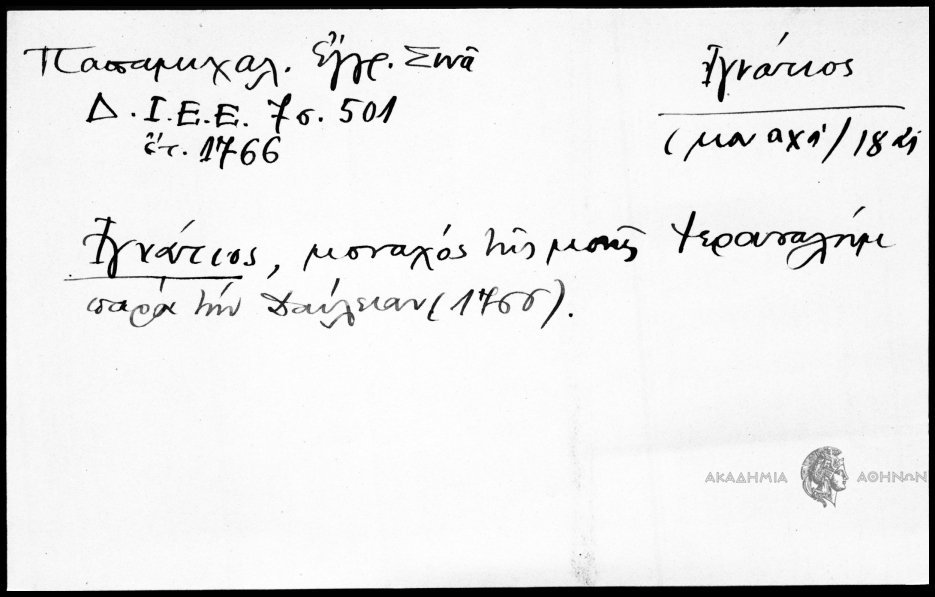 Παπαμιχαλ. Ἔγγρ. Σινᾶ
Δ. Ι.Ε.Ε. 7 σ. 501
ἔτ. 1766
Ἰγνάτιος
(μοναχὸ)/18
Ἰγνάτιος, μοναχός τῆς μονῆς Ἱερουσαλήμ
παρά τήν Δαύλειαν (1766).
ΑΚΑΔΗΜΙΑ ΑΘΗΝΩΝ